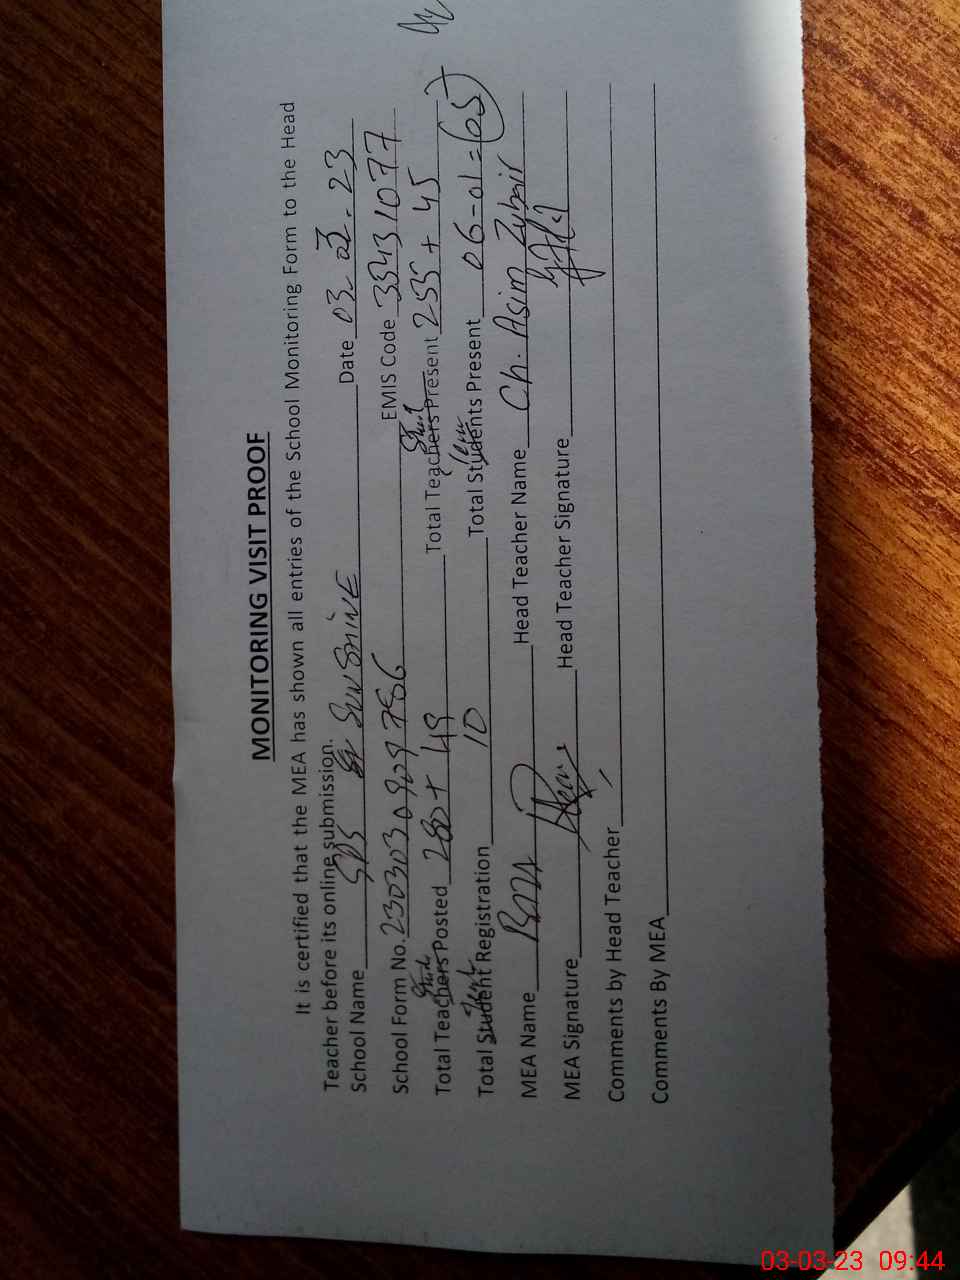 MONITORING VISIT PROOF
It is certified that the MEA has shown all entries of the School Monitoring Form to the Head
Teacher before its online submission.
School Name SDS SUNSHINE Date 03-03-23
School Form No. 230303 0909 786 EMIS Code 33431077
Total Teachers Posted 280 + 49 Total Teachers Present 255 + 45
Total Student Registration 10 Total Students Present 06-01=(05)
MEA Name Head Teacher Name Ch. Asim Zubair
MEA Signature Head Teacher Signature
Comments by Head Teacher
Comments By MEA
03-03-23 09:44